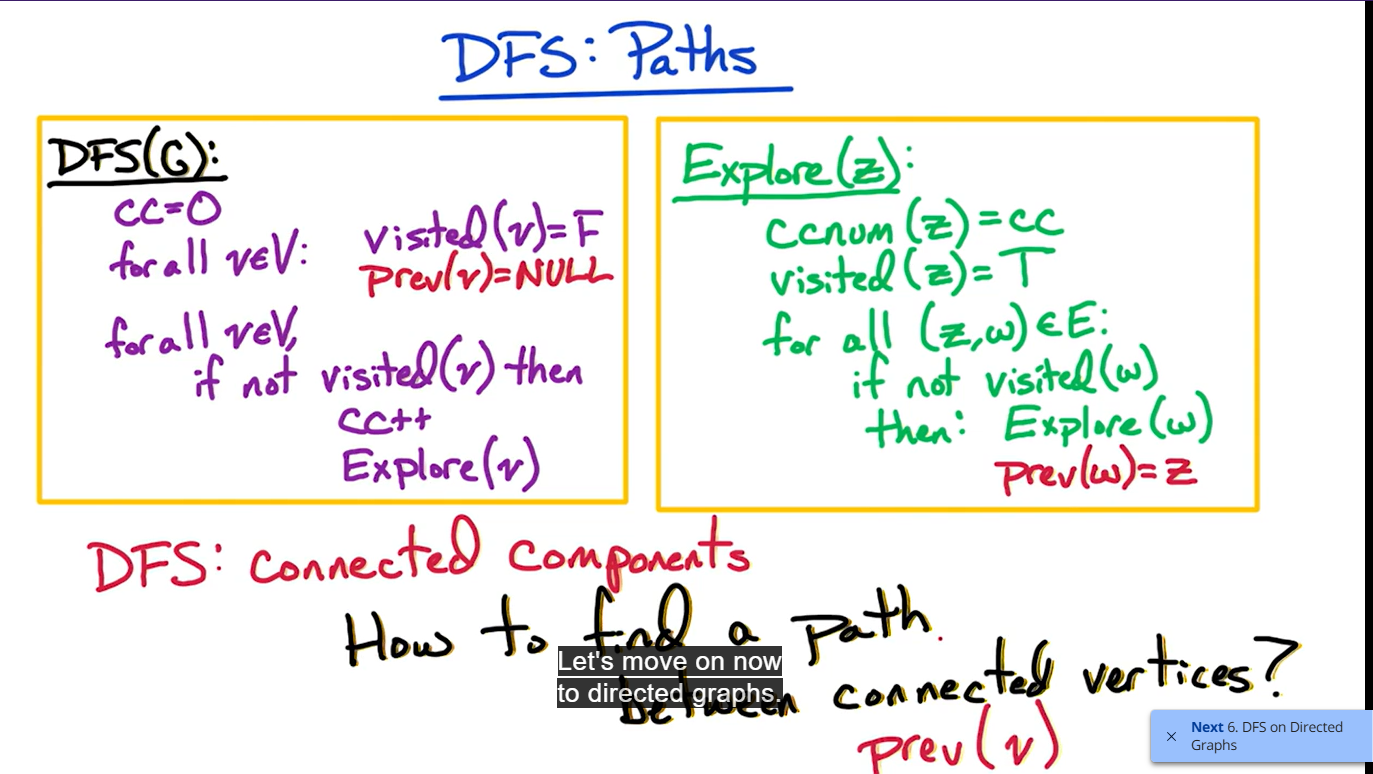 DFS: Paths
DFS(G):
cc=0
for all v∈V: visited(v)=F
prev(v)=NULL
for all v∈V,
if not visited(v) then
cc++
Explore(v)
Explore(z):
ccnum(z)=cc
visited(z)=T
for all (z,w)∈E:
if not visited(w)
then: Explore(w)
prev(w)=z
DFS: connected components
How to find a path
between connected vertices?
prev(v)
Let's move on now
to directed graphs.
Next 6. DFS on Directed
Graphs